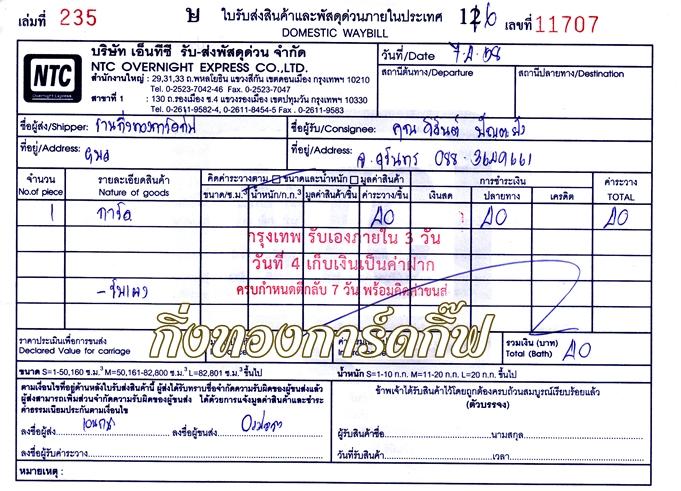 เล่มที่ 235 ษ ใบรับส่งสินค้าและพัสดุด่วนภายในประเทศ 126 เลขที่ 11707
DOMESTIC WAYBILL
NTC
Overnight Express
บริษัท เอ็นทีซี รับ-ส่งพัสดุด่วน จำกัด
NTC OVERNIGHT EXPRESS CO.,LTD.
สำนักงานใหญ่ : 29,31,33 ถ.พหลโยธิน แขวงสีกัน เขตดอนเมือง กรุงเทพฯ 10210
Tel. 0-2523-7042-46 Fax. 0-2523-7047
สาขาที่ 1 : 130 ถ.รองเมือง ซ.4 แขวงรองเมือง เขตปทุมวัน กรุงเทพฯ 10330
Tel. 0-2611-9582-4, 0-2611-8454-5 Fax. 0-2611-9583
วันที่/Date
สถานีต้นทาง/Departure สถานีปลายทาง/Destination
ชื่อผู้ส่ง/Shipper: ร้านกิ่งทองการ์ดกิ๊ฟ ชื่อผู้รับ/Consignee: คุณ
ที่อยู่/Address: ที่อยู่/Address: จ.สุรินทร์ 088
จำนวน รายละเอียดสินค้า คิดค่าระวางตาม ขนาดและน้ำหนัก มูลค่าสินค้า การชำระเงิน ค่าระวาง
No.of piece Nature of goods ขนาด/ซ.ม.³ น้ำหนัก/ก.ก.³ มูลค่าสินค้า/ชิ้น ค่าระวาง/ชิ้น เงินสด ปลายทาง เครดิต TOTAL
1 การ์ด
กรุงเทพ รับเองภายใน 3 วัน
วันที่ 4 เก็บเงินเป็นค่าฝาก
ครบกำหนดตีกลับ 7 วัน พร้อมคิดค่าขนส่ง
กิ่งทองการ์ดกิ๊ฟ
ราคาประเมินเพื่อการขนส่ง รวมเงิน (บาท)
Declared Value for carriage Total (Bath)
ขนาด S=1-50,160 ซ.ม.³ M=50,161-82,800 ซ.ม.³ L=82,801 ซ.ม.³ ขึ้นไป น้ำหนัก S=1-10 ก.ก. M=11-20 ก.ก. L=20 ก.ก. ขึ้นไป
ตามเงื่อนไขที่อยู่ด้านหลังใบรับส่งสินค้านี้ ผู้ส่งได้รับทราบข้อจำกัดความรับผิดของผู้ขนส่งแล้ว
ผู้ส่งสามารถเพิ่มส่วนจำกัดความรับผิดของผู้ขนส่ง ได้ด้วยการแจ้งมูลค่าสินค้าและชำระ
ค่าธรรมเนียมประกันตามเงื่อนไข
ข้าพเจ้าได้รับสินค้าไว้โดยถูกต้องครบถ้วนสมบูรณ์เรียบร้อยแล้ว
(ตัวบรรจง)
ลงชื่อผู้ส่ง ลงชื่อผู้ขนส่ง
ลงชื่อผู้รับค่าระวาง
ผู้รับสินค้าชื่อ นามสกุล
วันที่รับสินค้า เวลา
หมายเหตุ :